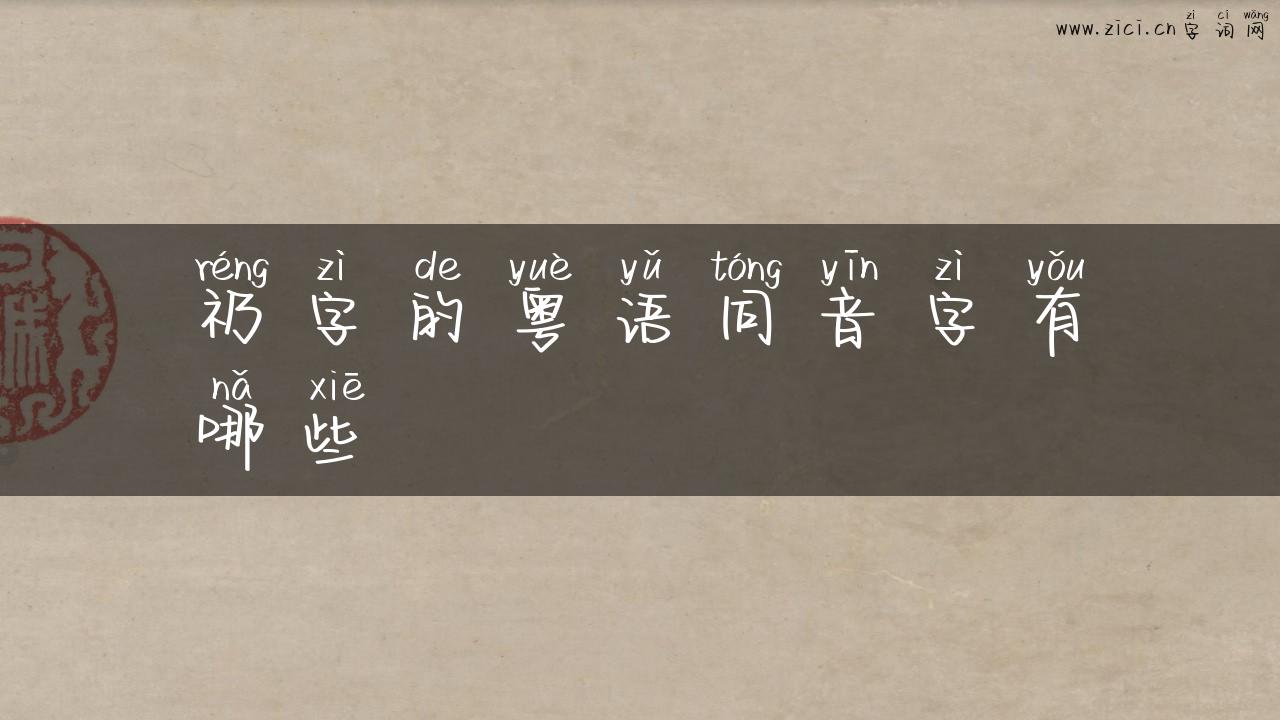 zì cí wǎng
www.zici.cn 字词网
réng zì de yuè yǔ tóng yīn zì yǒu
礽字的粤语同音字有
nǎ xiē
哪些